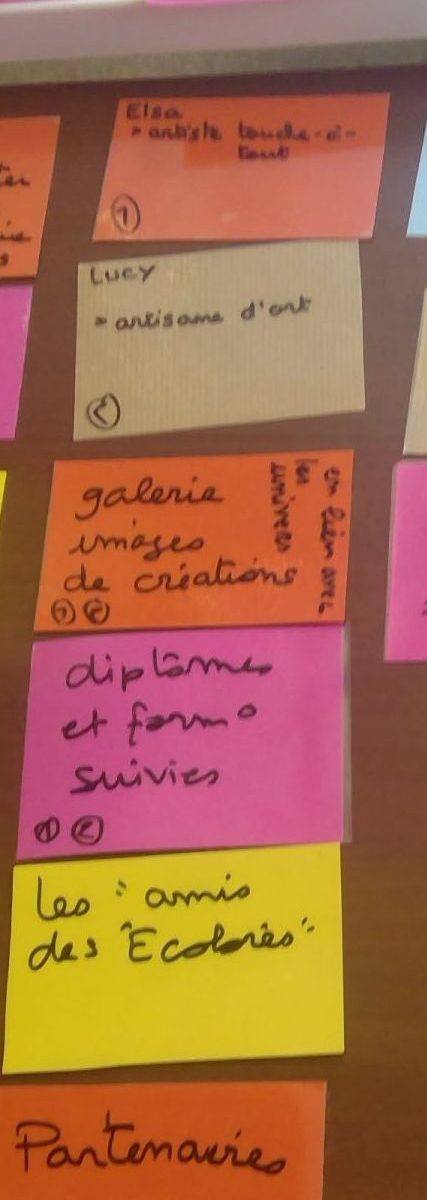 Elsa
> artiste touche-à-
tout
1
Lucy
> artisane d'art
2
galerie
images
de créations
1 2
en lien avec
les
univers
diplômes
et form°
suivies
1 2
Les "amis
des "Ecolorés"
Partenaires